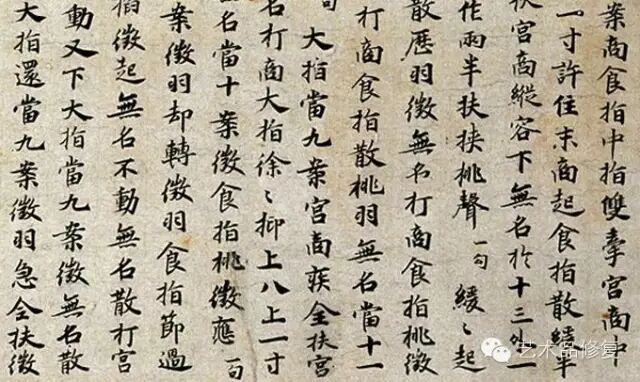 案商食指中指雙牽宮商中
一寸許住末商起食指散緩半
扶宮商縱容下無名於十三外一
作兩半扶挾桃聲一句緩〻起
散歷羽徵無名打商食指桃徵
打商食指散桃羽無名當十一
大指當九案宮商疾全扶宮
名打商大指徐〻抑上八上一寸
無名當十案徵食指桃徵應一句
案徵羽却轉徵羽食指節過
徵起無名不動無名散打宮
動又下大指當九案徵無名散
大指還當九案徵羽急全扶徵
艺术品修复